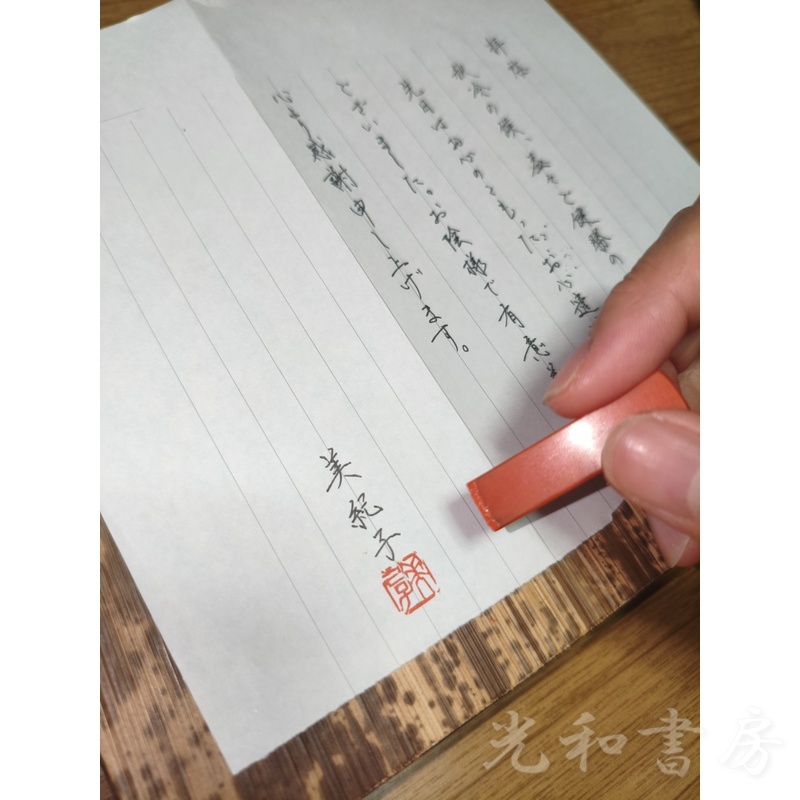 拝啓
秋冷の候、益々ご健勝の
先日はお心のこもったお心遣い
ございました。お陰様で有意義
心より感謝申し上げます。
美紀子
光和書房